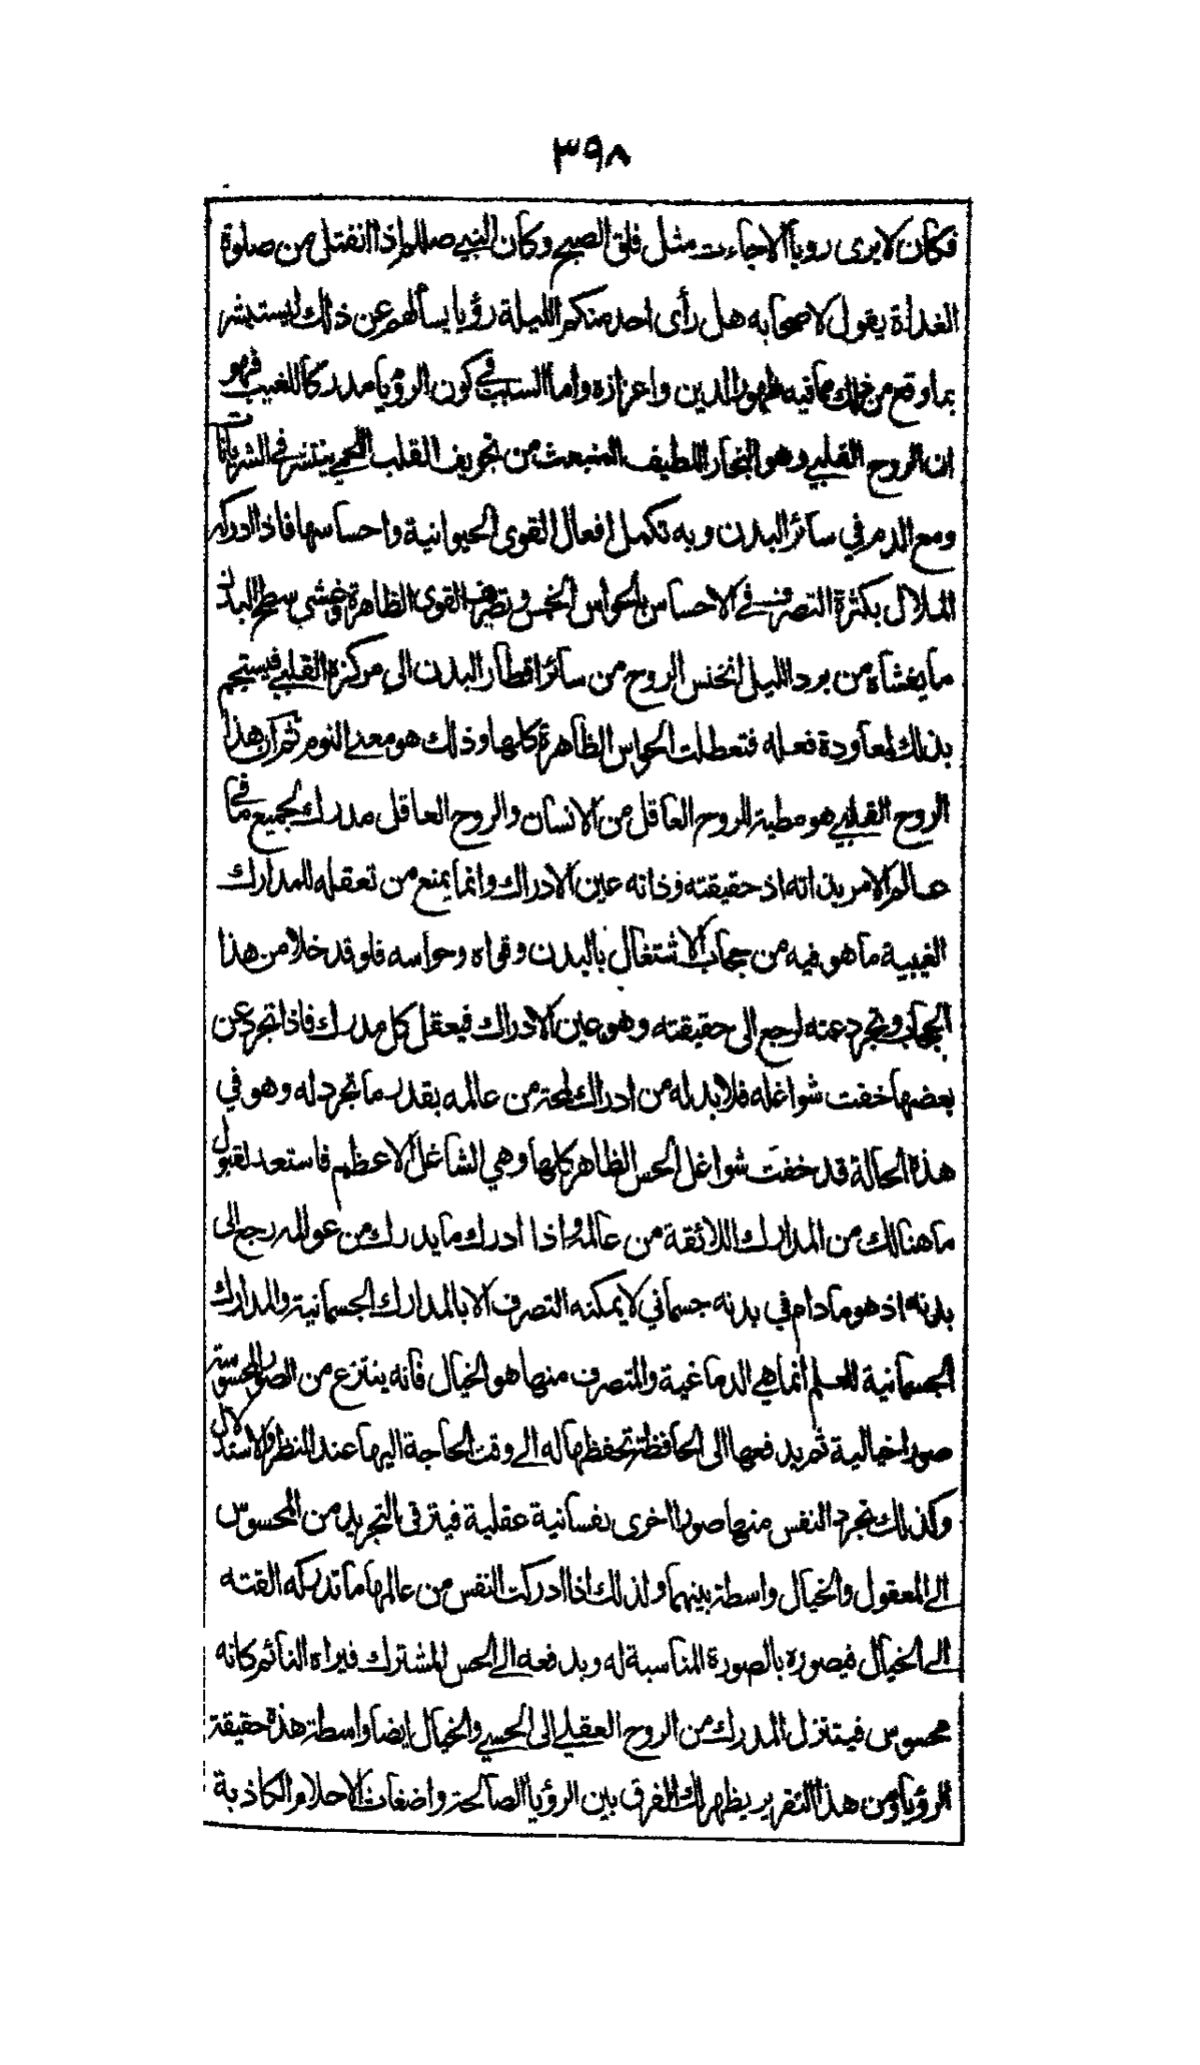 ٣٩٨
فكان لا يرى رويا الا جاءت مثل فلق الصبح وكان النبي صللم اذا انفتل من صلوة
الغداة يقول لاصحابه هل رأى احد منكم الليلة رؤيا يسألهم عن ذلك ليستبشر
بما وقع من ذلك مما فيه ظهور الدين واعزازه واما السبب في كون الرؤيا مدركا للغيب فهو
ان الروح القلبي وهو البخار اللطيف المنبعث من تجويف القلب اللحمي ينتشر في الشريانات
ومع الدم في سائر البدن وبه تكمل افعال القوى الحيوانية واحساسها فاذا ادركه
الملال بكثرة التصرف في الاحساس بالحواس الخمس وتصريف القوى الظاهرة وغشي سطح البدن
ما يغشاه من برد الليل انخنس الروح من سائر اقطار البدن الى مركزه القلبي فيستجم
بذلك لمعاودة فعله فتعطلت الحواس الظاهرة كلها وذلك هو معنى النوم ثم ان هذا
الروح القلبي هو مطية للروح العاقل من الانسان والروح العاقل مدرك لجميع ما في
عالم الامر بذاته اذ حقيقته وذاته عين الادراك وانما يمنع من تعقله للمدارك
الغيبية ما هو فيه من حجاب الاشتغال بالبدن وقواه وحواسه فلو قد خلا من هذا
الحجاب وتجرد عنه لرجع الى حقيقته وهو عين الادراك فيعقل كل مدرك فاذا تجرد عن
بعضها خفت شواغله فلا بد له من ادراك لمحة من عالمه بقدر ما تجرد له وهو في
هذه الحالة قد خفت شواغل الحس الظاهر كلها وهي الشاغل الاعظم فاستعد لقبول
ما هنالك من المدارك اللائقة من عالمه واذا ادرك ما يدرك من عوالمه رجع الى
بدنه اذ هو ما دام في بدنه جسماني لا يمكنه التصرف الا بالمدارك الجسمانية والمدارك
الجسمانية للعلم انما هي الدماغية والمتصرف منها هو الخيال فانه ينتزع من الصور المحسوسة
صورا خيالية ثم يدفعها الى الحافظة تحفظها له الى وقت الحاجة اليها عند النظر والاستدلال
وكذلك تجرد النفس منها صورا اخرى نفسانية عقلية فيترقى التجريد من المحسوس
الى المعقول والخيال واسطة بينهما ولذلك اذا ادركت النفس من عالمها ما تدركه القته
الى الخيال فيصوره بالصورة المناسبة له ويدفعه الى الحس المشترك فيراه النائم كانه
محسوس فيتنزل المدرك من الروح العقلي الى الحسي والخيال ايضا واسطة هذه حقيقة
الرؤيا ومن هذا التقرير يظهر لك الفرق بين الرؤيا الصالحة واضغاث الاحلام الكاذبة